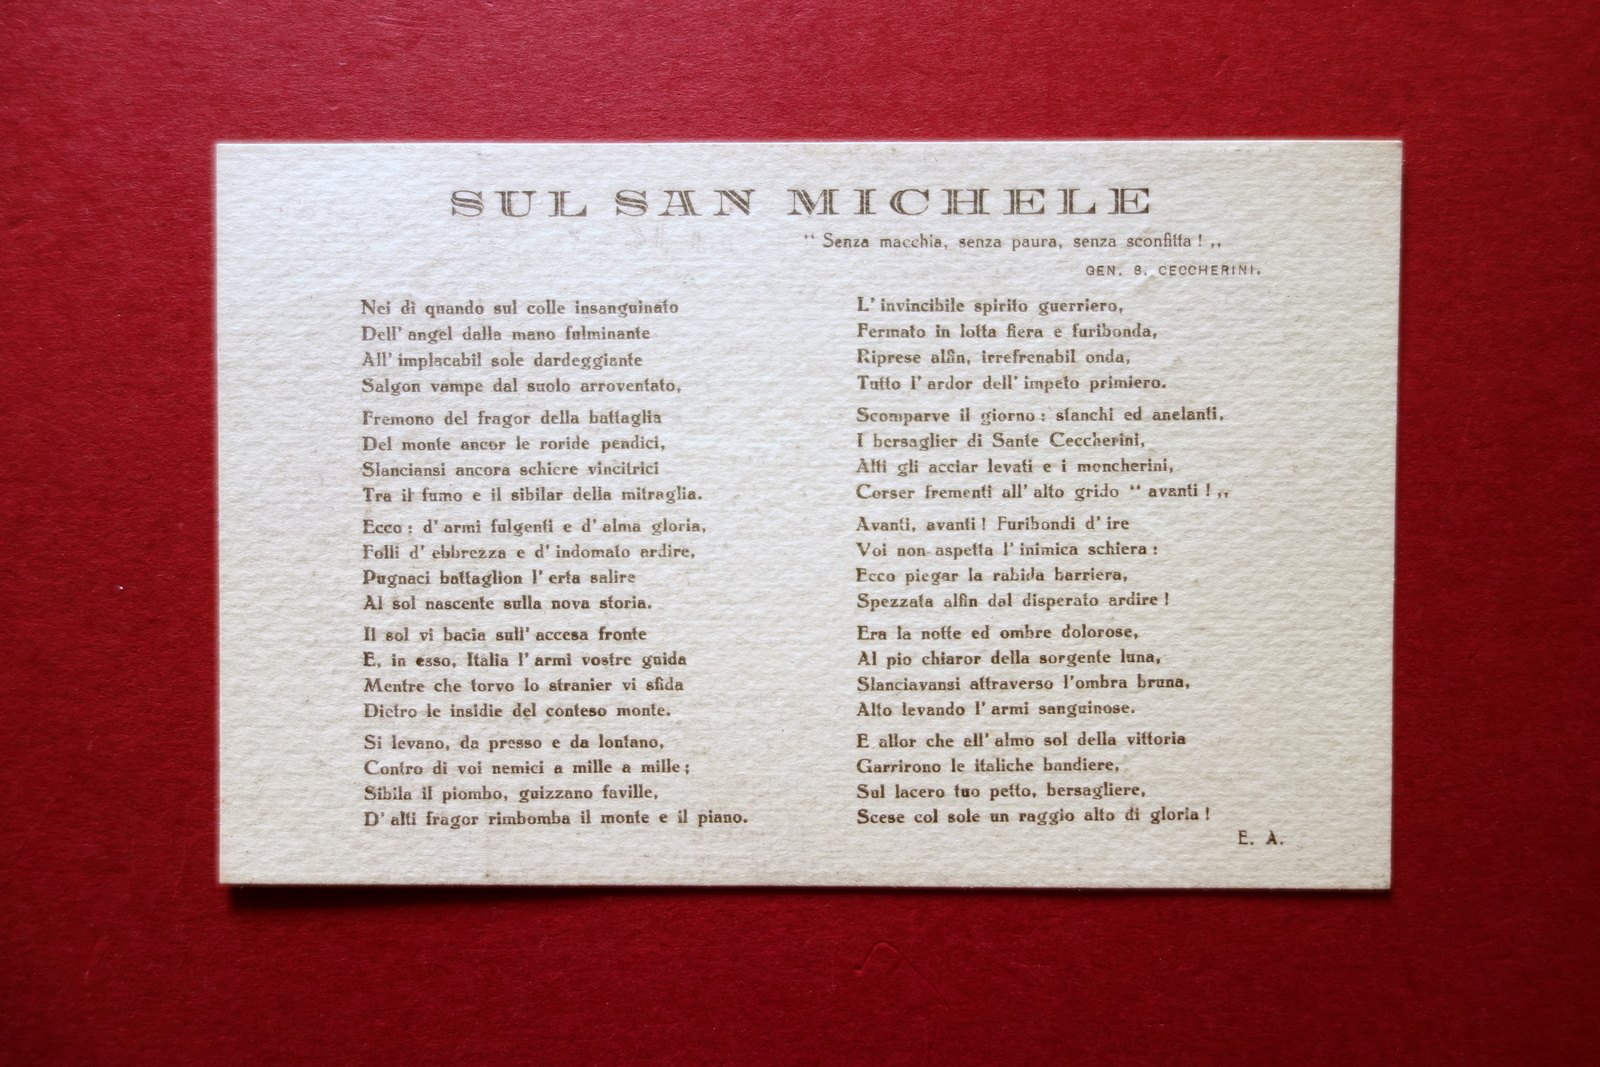 SUL SAN MICHELE
“ Senza macchia, senza paura, senza sconfitta ! „
GEN. S. CECCHERINI.
Nei dì quando sul colle insanguinato
Dell' angel dalla mano fulminante
All' implacabil sole dardeggiante
Salgon vampe dal suolo arroventato,
Fremono del fragor della battaglia
Del monte ancor le roride pendici,
Slanciansi ancora schiere vincitrici
Tra il fumo e il sibilar della mitraglia.
Ecco : d' armi fulgenti e d' alma gloria,
Folli d' ebbrezza e d' indomato ardire,
Pugnaci battaglion l' erta salire
Al sol nascente sulla nova storia.
Il sol vi bacia sull' accesa fronte
E, in esso, Italia l' armi vostre guida
Mentre che torvo lo stranier vi sfida
Dietro le insidie del conteso monte.
Si levano, da presso e da lontano,
Contro di voi nemici a mille a mille ;
Sibila il piombo, guizzano faville,
D' alti fragor rimbomba il monte e il piano.
L' invincibile spirito guerriero,
Fermato in lotta fiera e furibonda,
Riprese alfin, irrefrenabil onda,
Tutto l' ardor dell' impeto primiero.
Scomparve il giorno : stanchi ed anelanti,
I bersaglier di Sante Ceccherini,
Alti gli acciar levati e i moncherini,
Corser frementi all' alto grido “ avanti ! „
Avanti, avanti ! Furibondi d' ire
Voi non aspetta l' inimica schiera :
Ecco piegar la rabida barriera,
Spezzata alfin dal disperato ardire !
Era la notte ed ombre dolorose,
Al pio chiaror della sorgente luna,
Slanciavansi attraverso l'ombra bruna,
Alto levando l' armi sanguinose.
E allor che all' almo sol della vittoria
Garrirono le italiche bandiere,
Sul lacero tuo petto, bersagliere,
Scese col sole un raggio alto di gloria !
E. A.